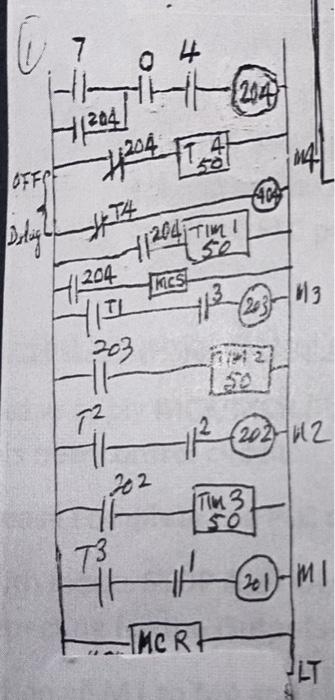 1
7 0 4 204
204
204 T 4 50 M4
OFF
404
T4
Delay
204 TIM 1 50
204 MCS
T1 3 203 M3
203 TIM 2 50
T2 2 202 M2
202 TIM 3 50
T3 1 201 M1
MCR
LT